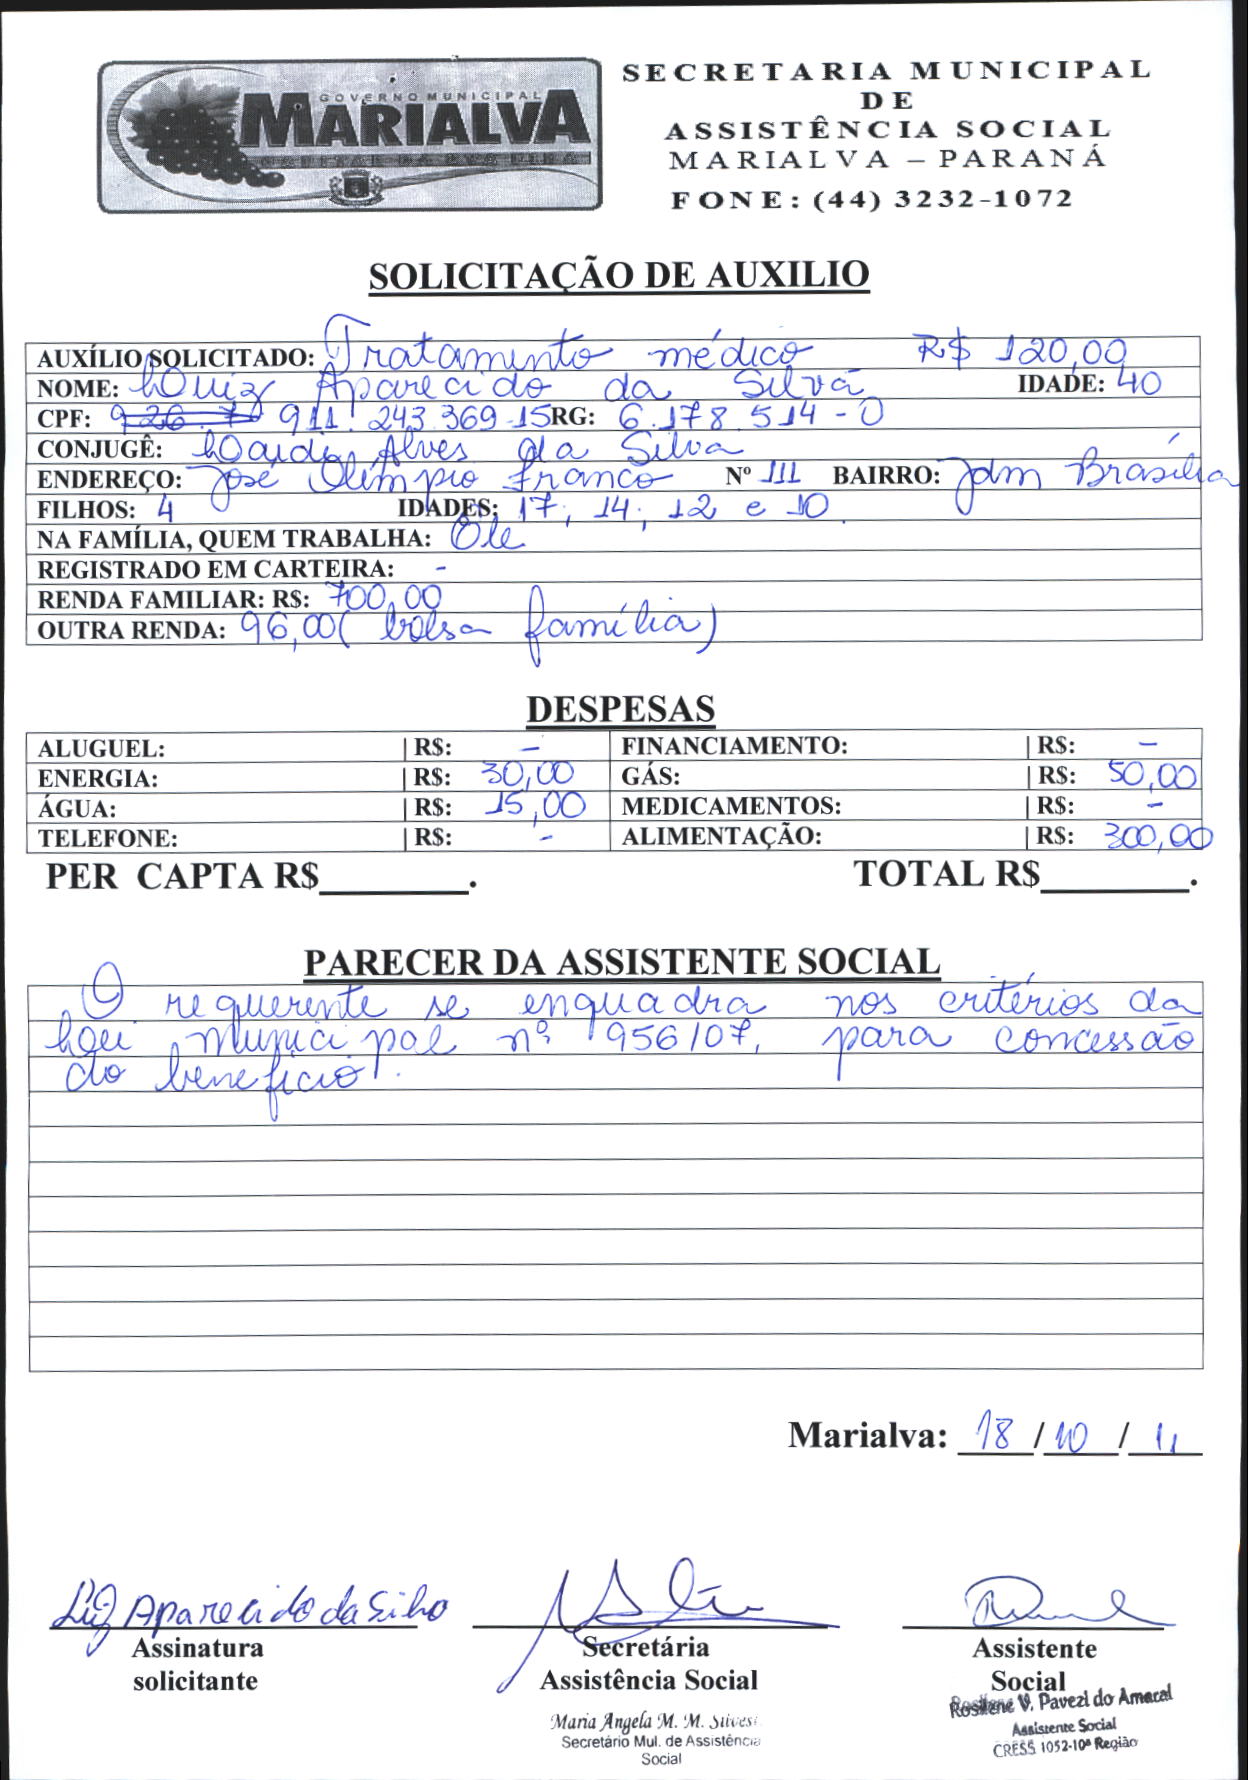 GOVERNO MUNICIPAL
MARIALVA
SECRETARIA MUNICIPAL
DE
ASSISTÊNCIA SOCIAL
MARIALVA – PARANÁ
FONE: (44) 3232-1072
SOLICITAÇÃO DE AUXILIO
AUXÍLIO SOLICITADO: Tratamento médico R$ 120,00
NOME: Luiz Aparecido da Silva IDADE: 40
CPF: 911.243.369-15 RG: 6.178.514-0
CONJUGÊ: Alves da Silva
ENDEREÇO: José Olímpio Franco Nº 111 BAIRRO: Jdm Brasília
FILHOS: 4 IDADES: 17, 14, 12 e 10.
NA FAMÍLIA, QUEM TRABALHA: Ele
REGISTRADO EM CARTEIRA: -
RENDA FAMILIAR: R$: 700,00
OUTRA RENDA: 96,00 (bolsa família)
DESPESAS
ALUGUEL: | R$: - FINANCIAMENTO: | R$: -
ENERGIA: | R$: 30,00 GÁS: | R$: 50,00
ÁGUA: | R$: 15,00 MEDICAMENTOS: | R$: -
TELEFONE: | R$: - ALIMENTAÇÃO: | R$: 300,00
PER CAPTA R$________. TOTAL R$________.
PARECER DA ASSISTENTE SOCIAL
O requerente se enquadra nos critérios da
Lei Municipal nº 956/07, para concessão
do benefício.
Marialva: 18/10/11
Luiz Aparecido da Silva
Assinatura
solicitante
Secretária
Assistência Social
Maria Angela M. M.
Secretário Mul. de Assistência
Social
Assistente
Social
Rosilene V. Pavezi do Amaral
Assistente Social
CRESS 1052-10ª Região